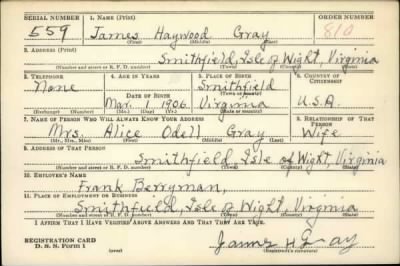 SERIAL NUMBER 1. NAME (Print) ORDER NUMBER
559 James Haywood Gray 810
(First) (Middle) (Last)
2. ADDRESS (Print)
Smithfield, Isle of Wight, Virginia
(Number and street or R. F. D. number) (Town) (County) (State)
3. TELEPHONE 4. AGE IN YEARS 5. PLACE OF BIRTH 6. COUNTRY OF CITIZENSHIP
None Smithfield
DATE OF BIRTH (Town or county)
Mar. 1 1906 Virginia U.S.A.
(Exchange) (Number) (Mo.) (Day) (Yr.) (State or country)
7. NAME OF PERSON WHO WILL ALWAYS KNOW YOUR ADDRESS 8. RELATIONSHIP OF THAT PERSON
Mrs. Alice Odell Gray Wife
(Mr., Mrs., Miss) (First) (Middle) (Last)
9. ADDRESS OF THAT PERSON
Smithfield, Isle of Wight, Virginia
(Number and street or R. F. D. number) (Town) (County) (State)
10. EMPLOYER'S NAME
Frank Berryman,
11. PLACE OF EMPLOYMENT OR BUSINESS
Smithfield, Isle of Wight, Virginia
(Number and street or R. F. D. number) (Town) (County) (State)
I AFFIRM THAT I HAVE VERIFIED ABOVE ANSWERS AND THAT THEY ARE TRUE.
REGISTRATION CARD
D. S. S. Form 1 (over) James H Gray